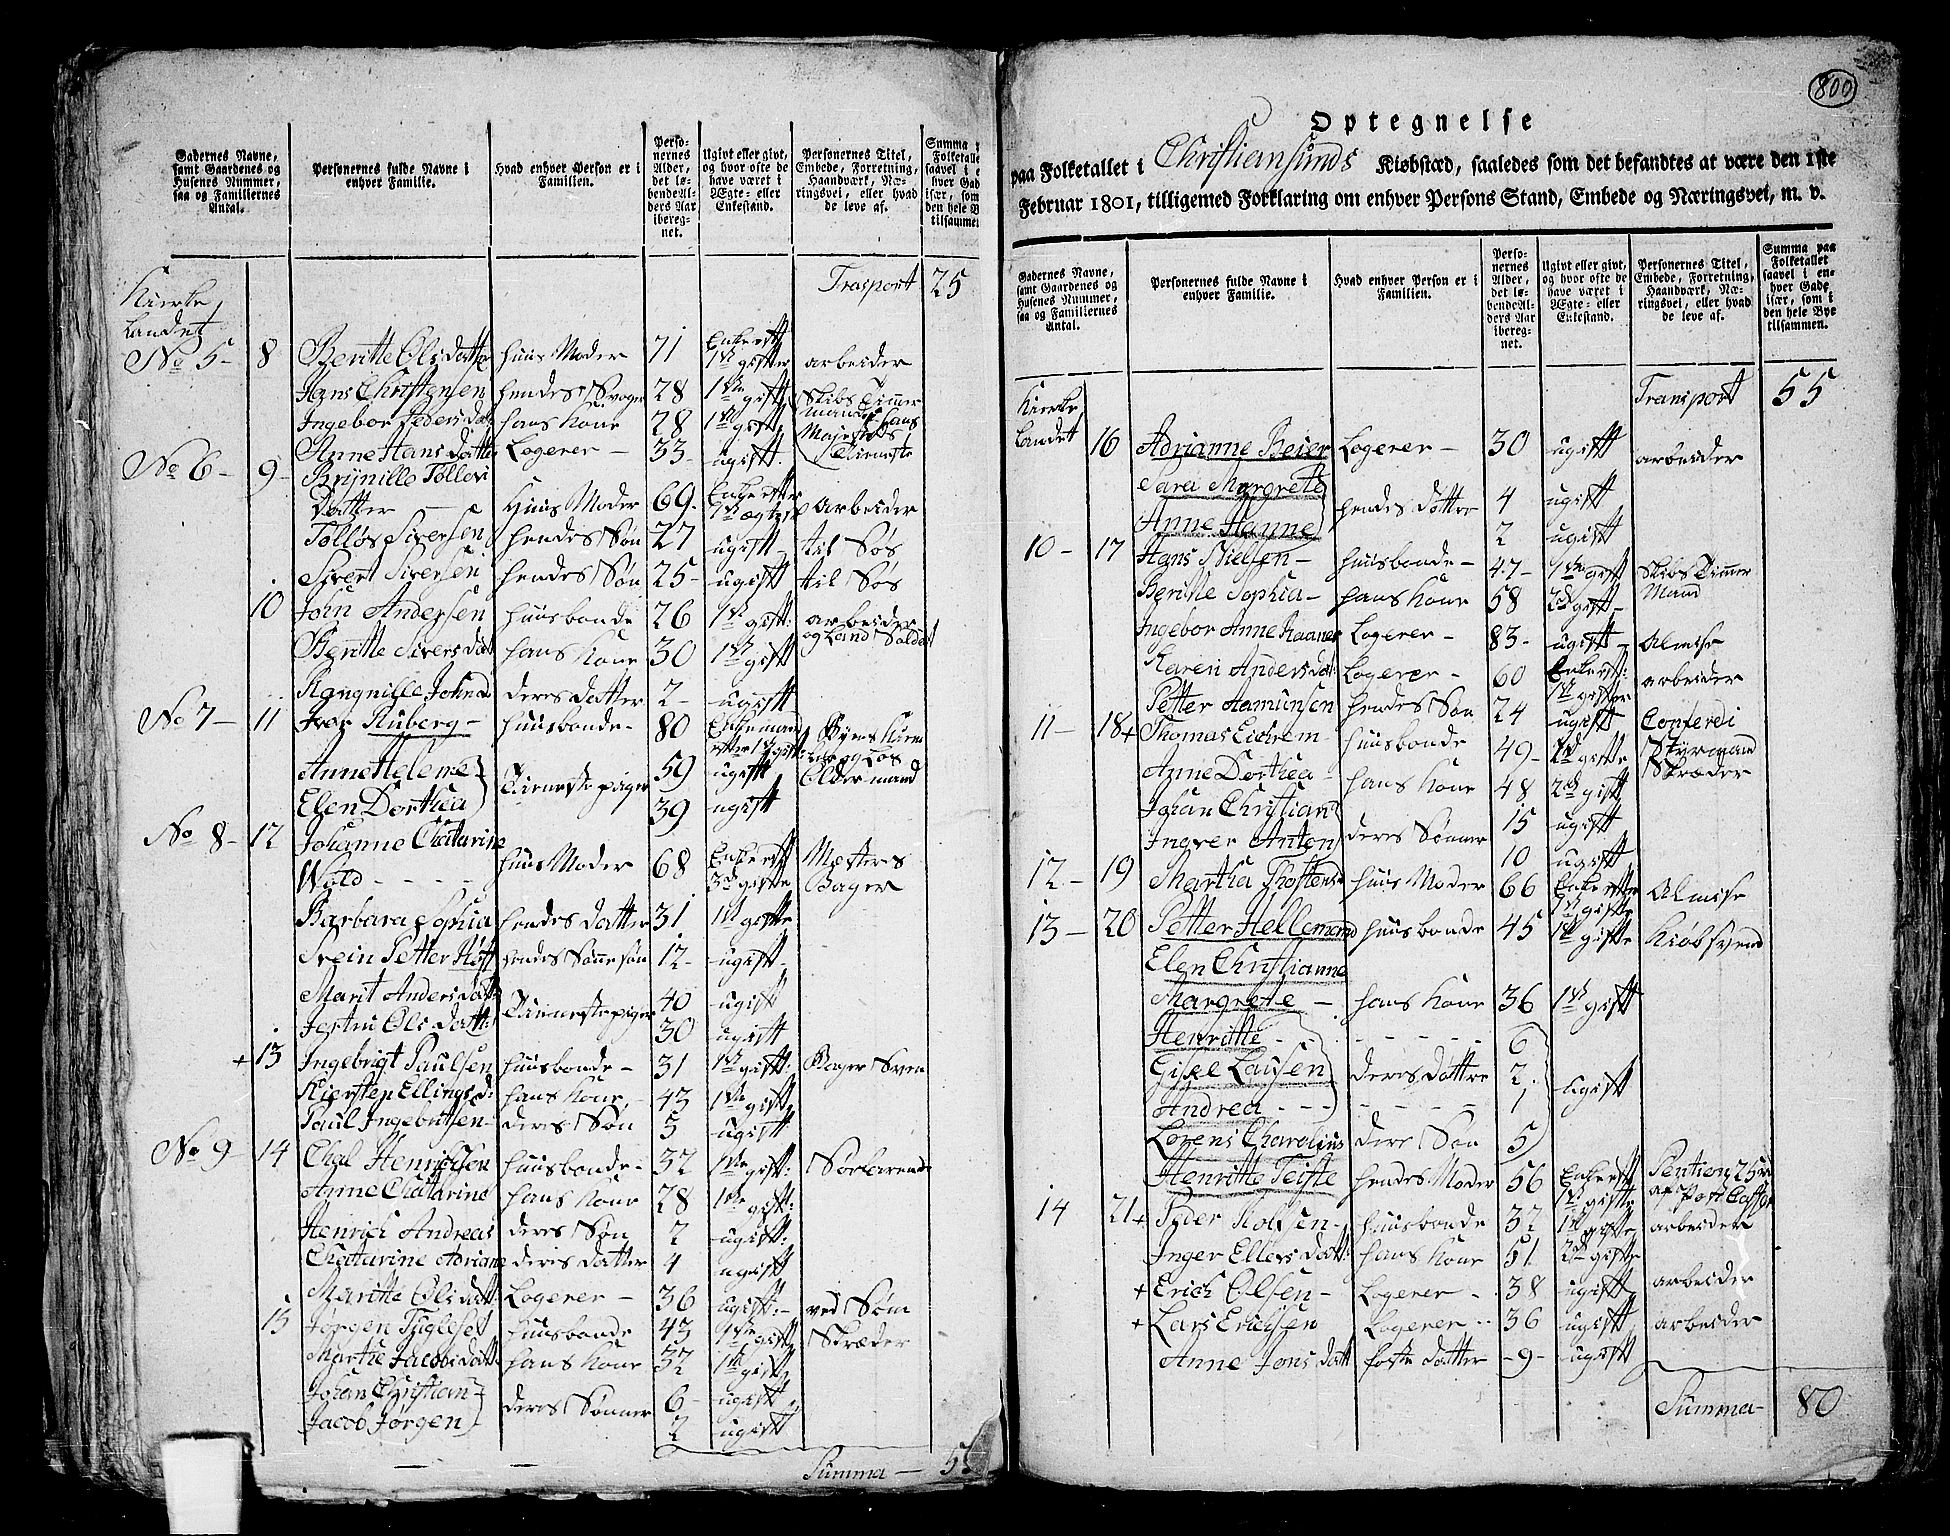 Gadernes Navne, samt Gaardenes og Husenes Nummer, saa og Familiernes Antal.
Personernes fulde Navne i enhver Familie.
Hvad enhver Person er i Familien.
Personernes Alder, det løbende Alders Aar iberegnet.
Ugivt eller givt, og hvor ofte de have været i Ægte- eller Enkestand.
Personernes Titel, Embede, Forretning, Haandværk, Næringsvei, eller hvad de leve af.
Kierke Landet Trasport 25
No 5 - 8 Beritte Olsdatter huus Moder 71 Enke efter 1ste gifte arbeider
Hans Christensen hendes Svoger 28 1ste gift Skibs Timer
Ingebor Peders dat hans Kone 28 1ste gift
Anne Hans datter Logerer - 33 - ugift
No 6 - 9 - Brynille Tollevs
Datter Huus Moder 69 - arbeider
Tolløv Siversen hendes Søn 27 ugift til Søs
Sivert Siversen hendes Søn 25 - ugift til Søs
10 John Andersen huusbonde 26 1ste gift: arbeider og Land Soldat
Beritte Sivers dat hans Kone 30 1ste gift
Rangnille Johns d deres datter 2 - ugift
No 7 - 11 Iver Ruberg - huusbonde - 80
Anne Helene Tieneste piger 59 ugift
Elen Dorthea 39 ugift Oldermand
No 8 - 12 Johanne Chatarine
Wold - - - - huus Moder 68 Enke eft 3die gifte Mesters Bager
Barbara Sophia hendes datter 31 1ste gifte
Svein Petter hendes Sønne søn 12 - ugift -
Marit Anders datt Tieneste piger 40 ugift
Olsdatt: 30 ugift
+ 13 Ingebrigt Paulsen huusbonde - 31 1ste gift: Bager Sven
Kiersten Ellings d: hans Kone - 43 1ste gift
Paul Ingebritsen - deres Søn 5 ugift
No 9 - 14 Henrichsen huusbonde - 32 1ste gift:
Anne Chatarine hans Kone 28 1ste gift:
Henrich Andreas deres Søn 2 ugift:
Chatarine Adriane deres datter 4 ugift
Maritte Olsdatt: Logerer - 36 ugift: - ved Søm
15 Jørgen huusbonde 43 1ste gift Skræder
Marthe Jacobs datt hans Kone 32 1ste gift
Johan Christian deres Sønner 6 - ugift
Jacob Jørgen 2 ugift
Summa -
800
Optegnelse
paa Folketallet i Christiansunds Kiøbstæd, saaledes som det befandtes at være den 1ste
Februar 1801, tilligemed Forklaring om enhver Persons Stand, Embede og Næringsvei, m. v.
Gadernes Navne, samt Gaardenes og Husenes Nummer, saa og Familiernes Antal.
Personernes fulde Navne i enhver Familie.
Hvad enhver Person er i Familien.
Personernes Alder, det løbende Alders Aar iberegnet.
Ugivt eller givt, og hvor ofte de have været i Ægte- eller Enkestand.
Personernes Titel, Embede, Forretning, Haandværk, Næringsvei, eller hvad de leve af.
Summa paa Folketallet saavel i enhver Gade især, som i den hele Bye tilsammen.
Kierke Landet Transport 55
16 Adrianne Beier Logerer - 30 ugift arbeider
Sara Margrete hendes døttre 4 ugift
Anne Hanne 2 ugift
10 - 17 Hans Nielsen - huusbonde - 47 - 1ste gift Skibs Timer Mand
Beritte Sophia - hans Kone 58 2den gift -
Ingebor Anne Logerer - 83 - ugift - Almise
Karen Andersdat: Logerer - 60 Enke eft: 1ste gifte arbeider
Petter Aamunsen hendes Søn 24 ugift Conferdi Styrmand
11 - 18 + Thomas Eidrem - huusbonde 49 - 2den gifte Skræder
Anne Dorthea hans Kone 48 2den gift
Johan Christian deres Sønner 15 ugift
Ingver Anton 10 ugift
12 - 19 Martha huus Moder 66 Enke efter 1ste gifte Almise
13 - 20 Petter Hellemand huusbonde 45 1ste gifte Kiøbsvend
Elen Christianne
Margrete - hans Kone 36 1ste gift
Henritte - - - - - - - 6
Lausen deres døttre 2 ugift
Andrea - - - - - - - - 1
Lorens Charolius deres Søn 5
Henritte Teiste hendes Moder 56 Enke eft 1ste gifte
14 21 + Peder Rolfsen - huusbonde 32 1ste gifte arbeider
Inger Ellers datt: hans Kone 51 2den gifte
+ Erich Olsen - Logerer - 38 ugift arbeider
+ Lars Erichsen Logerer - 36 ugift arbeider
Anne Jons datt foster datter - 9 - ugift
Summa - 80